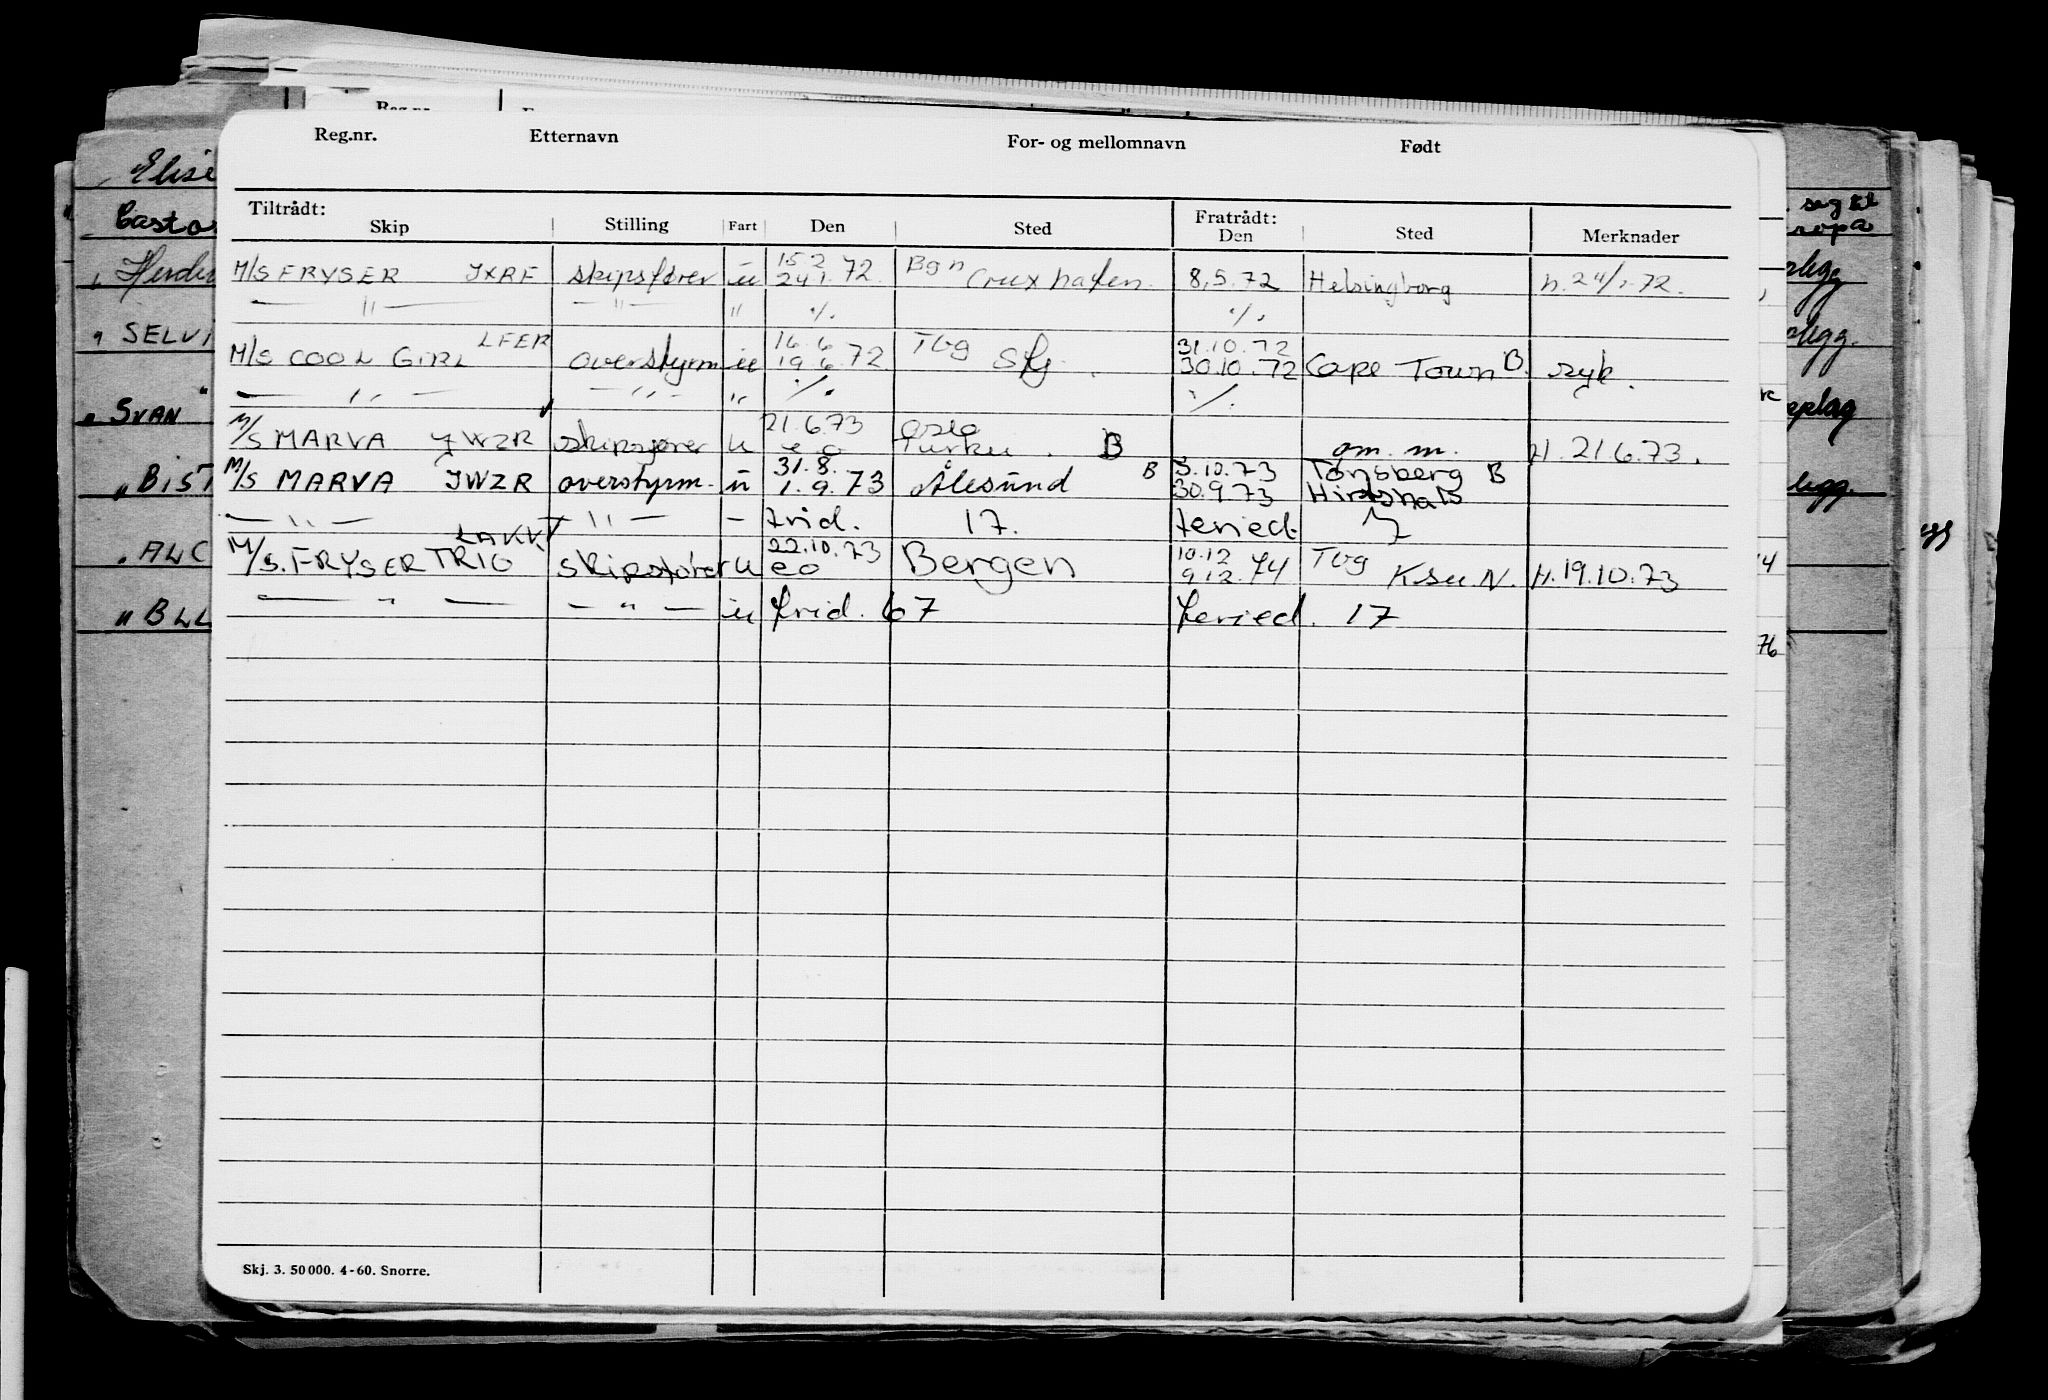 Reg.nr. Etternavn For- og mellomnavn Født
Tiltrådt: Fratrådt:
Skip Stilling Fart Den Sted Den Sted Merknader
M/S FRYSER JXRF skipsfører u 15.2 24.1.72 Bgn Cuxhafen. 8.5.72 Helsingborg h. 24/1-72.
— " — — " — " ./. ./.
M/S COOL GIRL LFER overstyrm u 16.6 19.6.72 Tbg Skj. 31.10.72 30.10.72 Cape Town B. syk.
— " — — " — " ./. ./.
M/S MARVA JWZR skipsfører u 21.6.73 e o Oslo Turku. B om. m. H. 21.6.73.
M/S MARVA JWZR overstyrm. u 31.8. 1.9.73 Ålesund B 5.10.73 30.9.73 Tønsberg B Hirtshals
— " — — " — — frid. 17. feried. 7
M/S. FRYSER TRIO LAKK skipsfører u 22.10.73 eo Bergen 10.12 9.12.74 Tbg K.su.N. H. 19.10.73
— " — — " — u frid. 67 feried. 17
Skj. 3. 50 000. 4-60. Snorre.
Elise
Casto
Herdis
SELVI
SVAN "
" BIST
" ALC
" BLL
seg til
ropa
legg
legg.
opplag
legg.
74
76